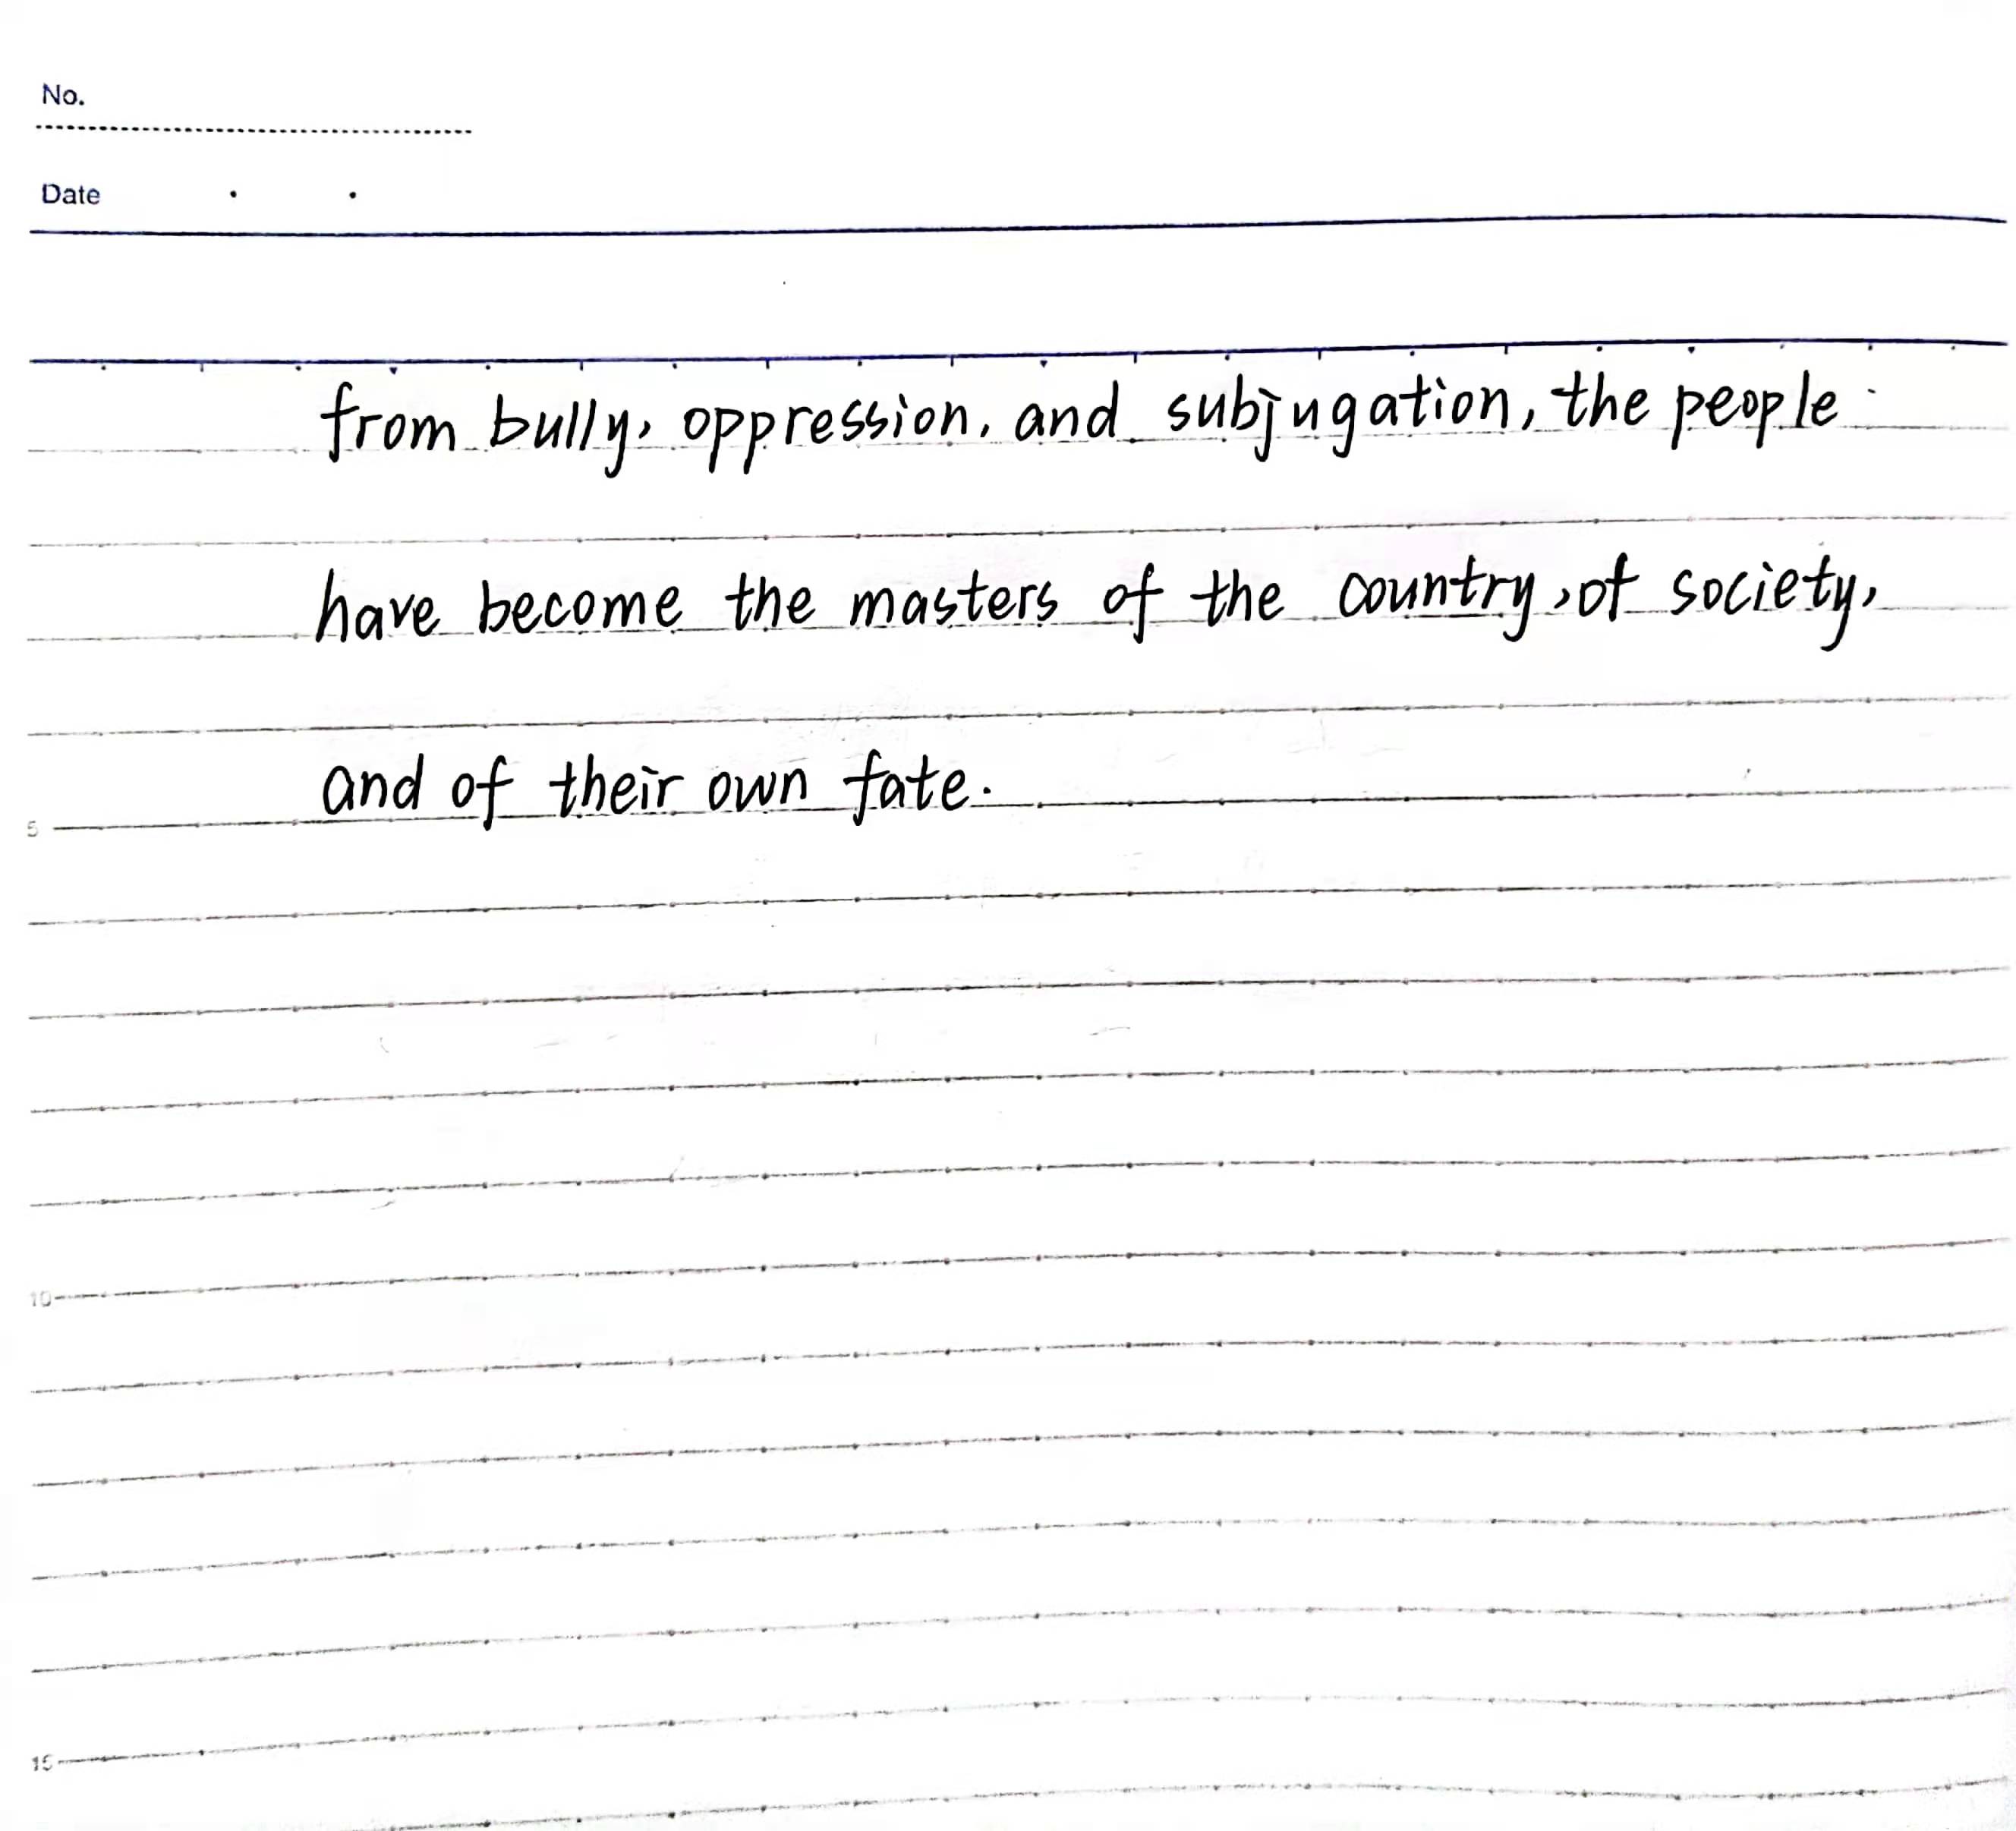 No.
Date
from bully, oppression, and subjugation, the people
have become the masters of the country, of society,
5 and of their own fate.
10
15